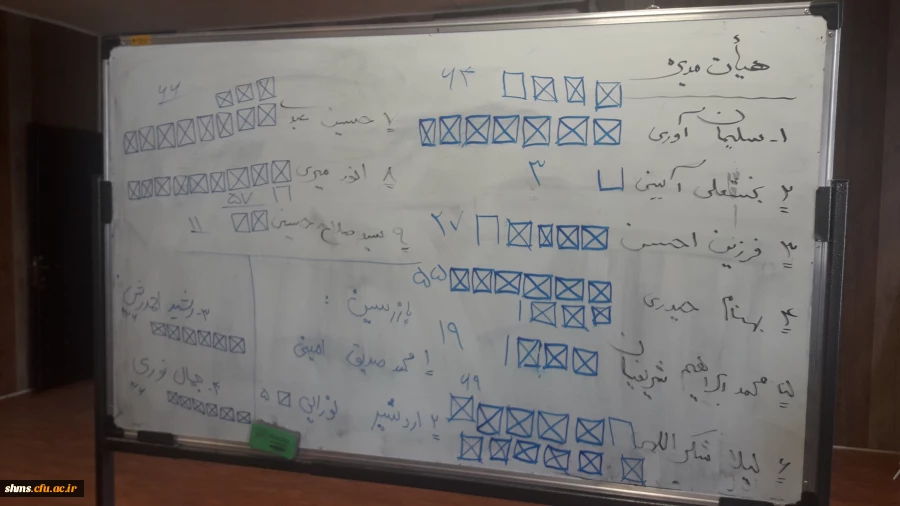 هیأت مدیره
۱- سلیمان آوری ۶۳
۲ بختعلی آیینی ۳
۳ فرزین احسن ۲۷
۴ بهنام حیدری ۵۵
۵ محمد ابراهیم شریفیان ۱۹
۶ لیلا شکراللهی ۶۹
۷ حسین ۶۶
۸ انور میری ۵۷
۹ سید صالح حسینی ۱۱
بازرسین :
۱ محمد صدیق امینی
۲ اردشیر نورایی ۵
۳- رشید
۴- جمال نوری
shms.cfu.ac.ir